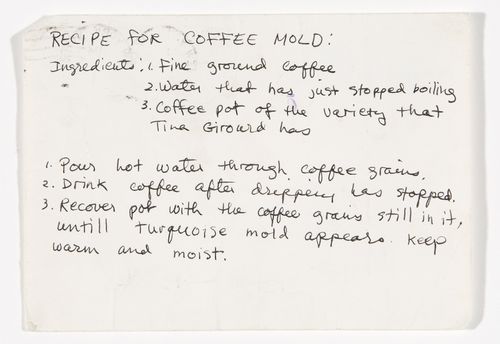 RECIPE FOR COFFEE MOLD:
Ingredients: 1. Fine ground coffee
2. Water that has just stopped boiling
3. Coffee pot of the variety that
Tina Girouard has
1. Pour hot water through coffee grains.
2. Drink coffee after dripping has stopped.
3. Recover pot with the coffee grains still in it,
untill turquoise mold appears. Keep
warm and moist.